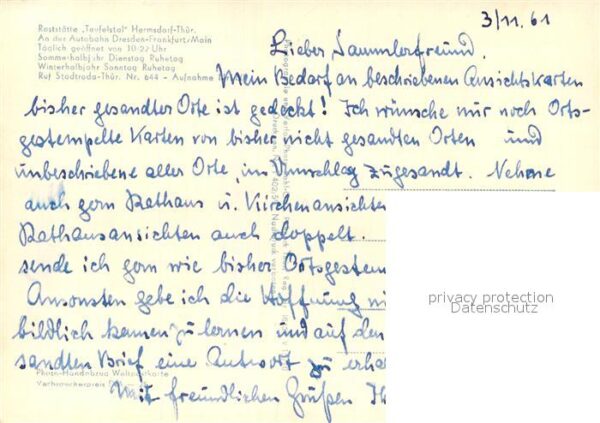 3/11. 61
Raststätte „Teufelstal" Hermsdorf-Thür.
An der Autobahn Dresden-Frankfurt/Main
Täglich geöffnet von 10-22 Uhr
Sommerhalbjahr Dienstag Ruhetag
Winterhalbjahr Sonntag Ruhetag
Ruf Stadtroda-Thür. Nr. 644 - Aufnahme
Lieber Sammlerfreund.
Mein Bedarf an beschriebenen Ansichtskarten
bisher gesandter Orte ist gedeckt! Ich wünsche nur noch Orts-
gestempelte Karten von bisher nicht gesandten Orten und
unbeschriebene aller Orte, im Umschlag zugesandt. Nehme
auch gern Rathaus u. Kirchenansichten
Rathausansichten auch doppelt.
sende ich gern wie bisher Ortsgestem
Ansonsten gebe ich die Hoffnung ni
bildlich kennen zu lernen und auf den
sandten Brief eine Antwort zu erha
Mit freundlichen Grüßen
Photo-Handabzug
Verbraucherpreis
privacy protection
Datenschutz